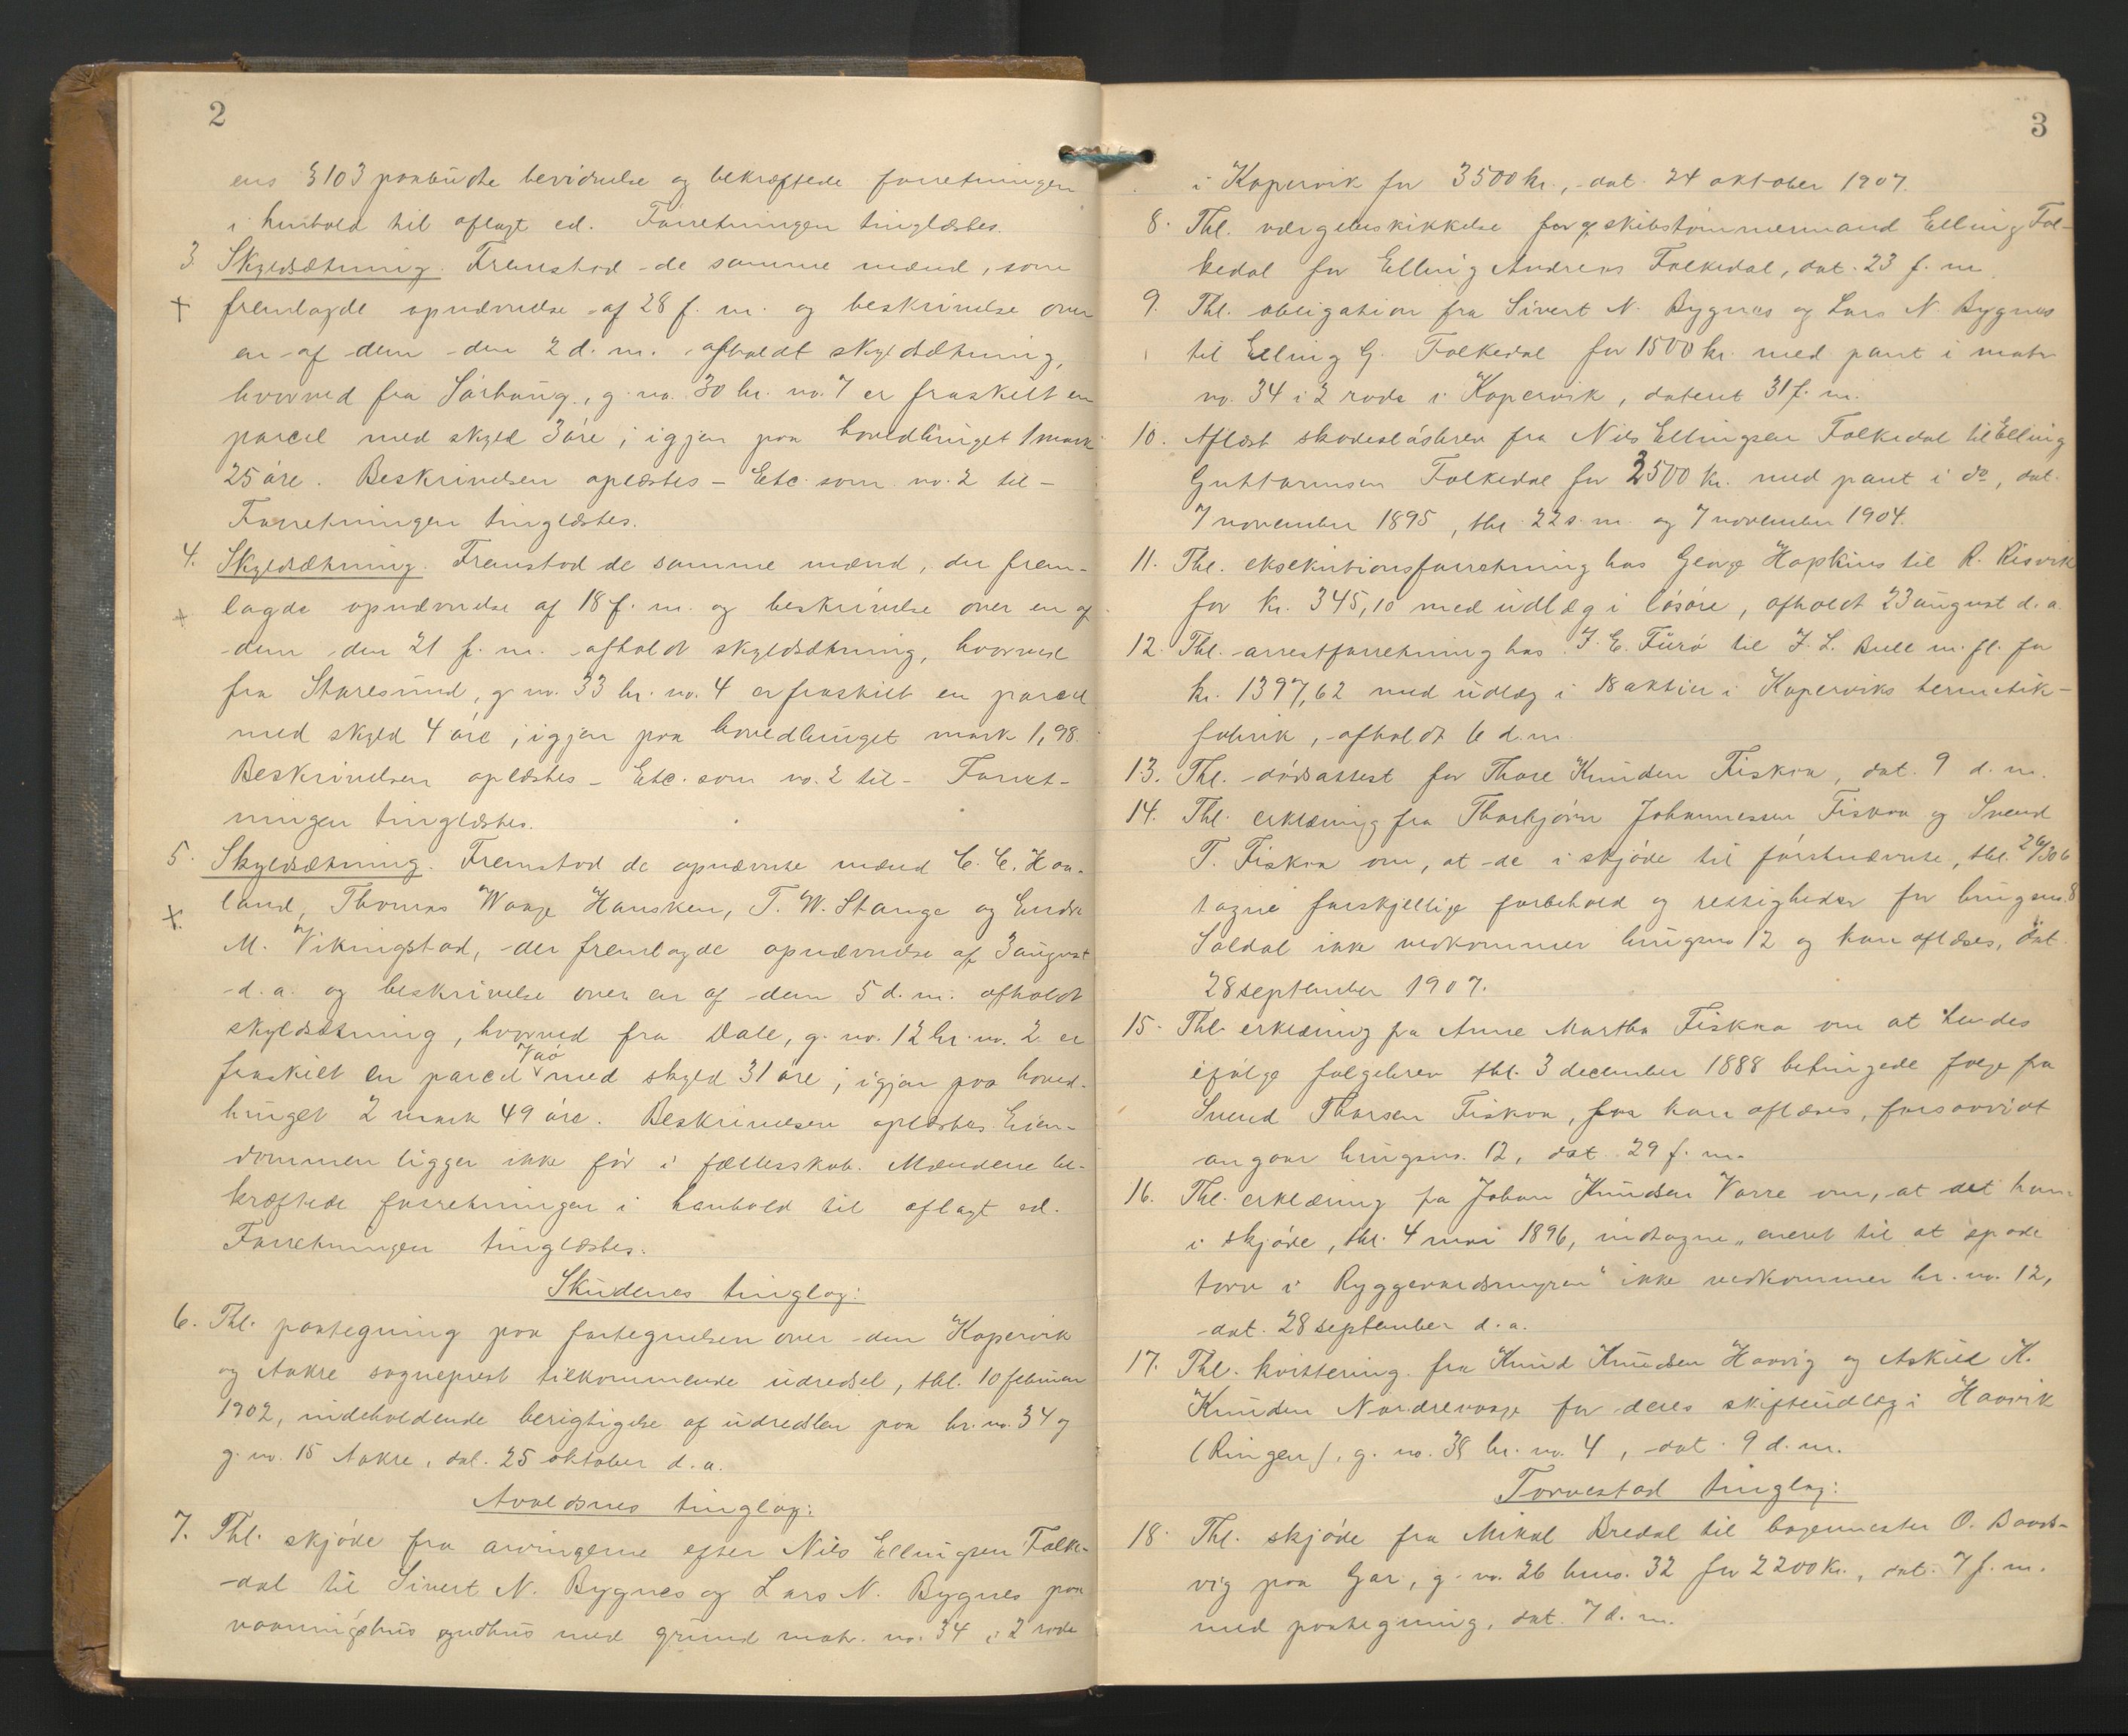 2
ens § 103 paabudte bevidnelse og bekræftede forretningen
i henhold til aflagt ed. Forretningen tinglæstes.
3. Skyldsætning. Fremstod de samme mænd, som
+ fremlagde opnævnelse af 28 f. m. og beskrivelse over
en af dem den 2 d. m. afholdt skyldsætning,
hvorved fra Sørhaug, g. no. 30 br. no. 7 er fraskilt en
parcel med skyld 3 øre; igjen paa hovedbruget 1 mark
25 øre. Beskrivelsen oplæstes – Etc. som no. 2 til –
Forretningen tinglæstes.
4. Skyldsætning. Fremstod de samme mænd, der frem-
+ lagde opnævnelse af 18 f. m. og beskrivelse over en af
dem den 21 f. m. afholdt skyldsætning, hvorved
fra Storesund, g. no. 33 br. no. 4 er fraskilt en parcel
med skyld 4 øre; igjen paa hovedbruget mark 1,98.
Beskrivelsen oplæstes – Etc. som no. 2 til – Forret-
ningen tinglæstes.
5. Skyldsætning. Fremstod de opnævnte mænd C. C. Haa-
+ land, Thomas Waage Hansken, T. W. Stange og Endre
M. Vikingstad, der fremlagde opnævnelse af 3 august
d. a. og beskrivelse over en af dem 5 d. m. afholdt
skyldsætning, hvorved fra Dale, g. no. 12 br. no. 2 er
fraskilt en parcel med skyld 31 øre; igjen paa hoved-
bruget 2 mark 49 øre. Beskrivelsen oplæstes. Eien-
dommen ligger ikke før i fællesskab. Mændene be-
kræftede forretningen i henhold til aflagt ed.
Forretningen tinglæstes.
Skudenes tinglag:
6. Thl. paategning paa fortegnelsen over den Kopervik
og Aakre sogneprest tilkommende udredsel, thl. 10 februar
1902, indeholdende berigtigelse af udredslen paa br. no. 34 og
g. no. 15 Aakre, dat. 25 oktober d. a.
Avaldsnes tinglag:
7. Thl. skjøde fra arvingerne efter Nils Ellingsen Falke-
dal til Sivert N. Bygnes og Lars N. Bygnes paa
vaaningshus og udhus med grund matr. no. 34 i 2 rode
3
i Kopervik for 3500 kr., dat. 24 oktober 1907.
8. Thl. værgebeskikkelse for skibstømmermand Elling Fal-
kedal for Elling Andreas Falkedal, dat. 23 f. m.
9. Thl. obligation fra Sivert N. Bygnes og Lars N. Bygnes
til Elling G. Falkedal for 1500 kr. med pant i matr.
no. 34 i 2 rode i Kopervik, dateret 31 f. m.
10. Aflæst skadesløsbrev fra Nils Ellingsen Falkedal til Elling
Guttormsen Falkedal for 2500 kr. med pant i do, dat.
7 november 1895, thl. 22 s. m. og 7 november 1904.
11. Thl. eksekutionsforretning hos George Hopkins til R. Risvik
for kr. 345,10 med udlæg i løsøre, afholdt 23 august d. a.
12. Thl. arrestforretning hos J. E. Furø til J. L. Bull m. fl. for
kr. 1397,62 med udlæg i 18 aktier i Koperviks hermetik-
fabrik, afholdt 6 d. m.
13. Thl. dødsattest for Thore Knudsen Fiskaa, dat. 9 d. m.
14. Thl. erklæring fra Thorbjørn Johannessen Fiskaa og Svend
T. Fiskaa om, at de i skjøde til førstnævnte, thl. 26/3 06
tagne forskjellige forbehold og rettigheder for brugsno. 8
Saldal ikke vedkommer brugsno 12 og kan aflæses, dat.
28 september 1907.
15. Thl. erklæring fra Anne Martha Fiskaa om at hendes
ifølge følgebrev thl. 3 december 1888 betingede følge fra
Svend Thorsen Fiskaa, kan aflæses, forsaavidt
angaar brugsno. 12, dat. 29 f. m.
16. Thl. erklæring fra Johan Knudsen Varre om, at det ham
i skjøde, thl. 4 mai 1896, indtagne „eneret til at spade
torv i Ryggevardsmyren“ ikke vedkommer br. no. 12,
dat. 28 september d. a.
17. Thl. kvittering fra Knud Knudsen Haavig og Askild K.
Knudsen Nordrevaage for deres skifteudlæg i Haavik
(Ringen), g. no. 38 br. no. 4, dat. 9 d. m.
Torvestad tinglag:
18. Thl. skjøde fra Mikal Bredal til bagermester O. Baards-
vig paa Gar, g. no. 26 brno. 32 for 2200 kr., dat. 7 f. m.
med paategning, dat. 7 d. m.